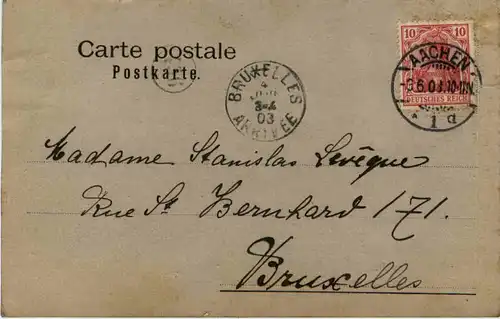 Carte postale
Postkarte.
10 10
DEUTSCHES REICH
AACHEN
6.03.10-11V.
* 1 d
BRUXELLES
4
3-4
03
ARRIVÉE
Madame Stanislas Levêque
Rue St Bernhard 171.
Bruxelles